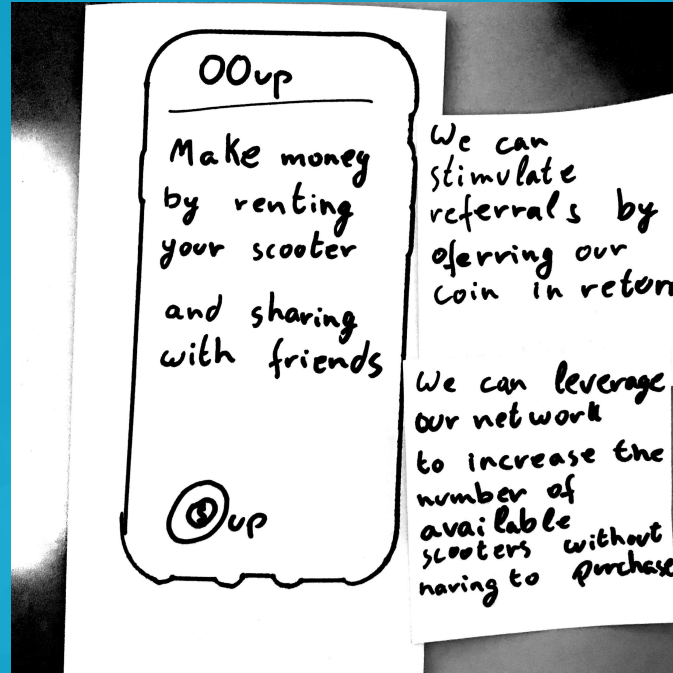 OOup
Make money
by renting
your scooter
and sharing
with friends
$ up
We can
stimulate
referrals by
oferring our
coin in return
We can leverage
our network
to increase the
number of
available
scooters without
having to purchase